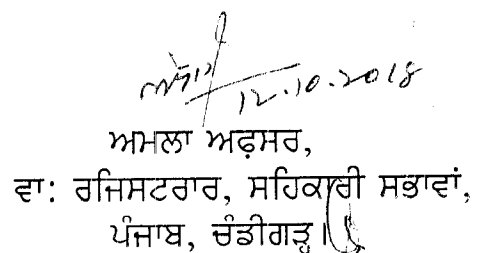 12.10.2018
ਅਮਲਾ ਅਫ਼ਸਰ,
ਵਾ: ਰਜਿਸਟਰਾਰ, ਸਹਿਕਾਰੀ ਸਭਾਵਾਂ,
ਪੰਜਾਬ, ਚੰਡੀਗੜ੍ਹ।